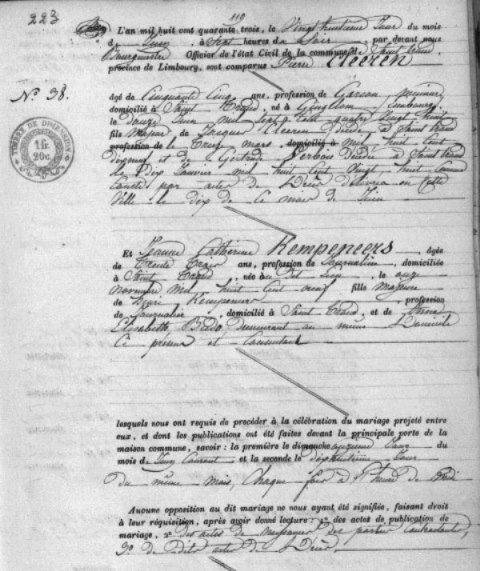 223
119
L'an mil huit cent quarante trois, le Vingtuitieme Jour du mois
d Juin à Sept heures de Soir, par devant nous
Bourgmestre Officier de l'état Civil de la commune de
province de Limbourg, sont comparus Pierre Cleeren
N° 38.
TIMBRE DE DIMENSION
1 fr.
20c.
âgé de Cinquante Cinq ans, profession de Garçon
domicilié à Saint Trond, né à Gingelom Limbourg
le douze Juin mil Sept Cent quatre Vingt huit
fils Majeur de Jacques Cleeren décédé, à Saint Trond
profession de le Treize mars, domicilié à mil huit Cent
et de Gertrude décédée à Saint Trond
le Dix Janvier mil huit Cent Vingt huit, Comme
Constés par actes de Décès délivrés en Cette
Ville le dix de Ce mois de Juin
Et Jeanne Catherine Kempeneers, âgée
de Trente Trois ans, profession de Journalière, domiciliée
à Saint Trond, née à le onze
novembre mil huit Cent neuf fille Majeure
de Henri Kempeneers, profession
de Journalier, domicilié à Saint Trond, et de
Elisabeth demeurant au même Domicile
Ci present et Consentant
lesquels nous ont requis de procéder à la célébration du mariage projeté entre
eux, et dont les publications ont été faites devant la principale porte de la
maison commune, savoir: la première le dimanche onzieme Jour du
mois d Juin Courant et la seconde le dixhuitieme Jour
du même mois, Chaque fois à l'heure de Midi
Aucune opposition au dit mariage ne nous ayant été signifiée, faisant droit
à leur réquisition, après avoir donné lecture 1° des actes de publication de
mariage, 2° des actes de naissances des parties Contractantes,
3° de dits actes de Décès,